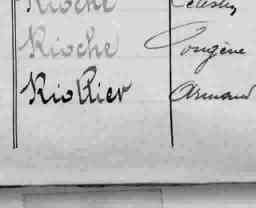 Rioche Célestin
Rioche Eugène
Riollier Armand